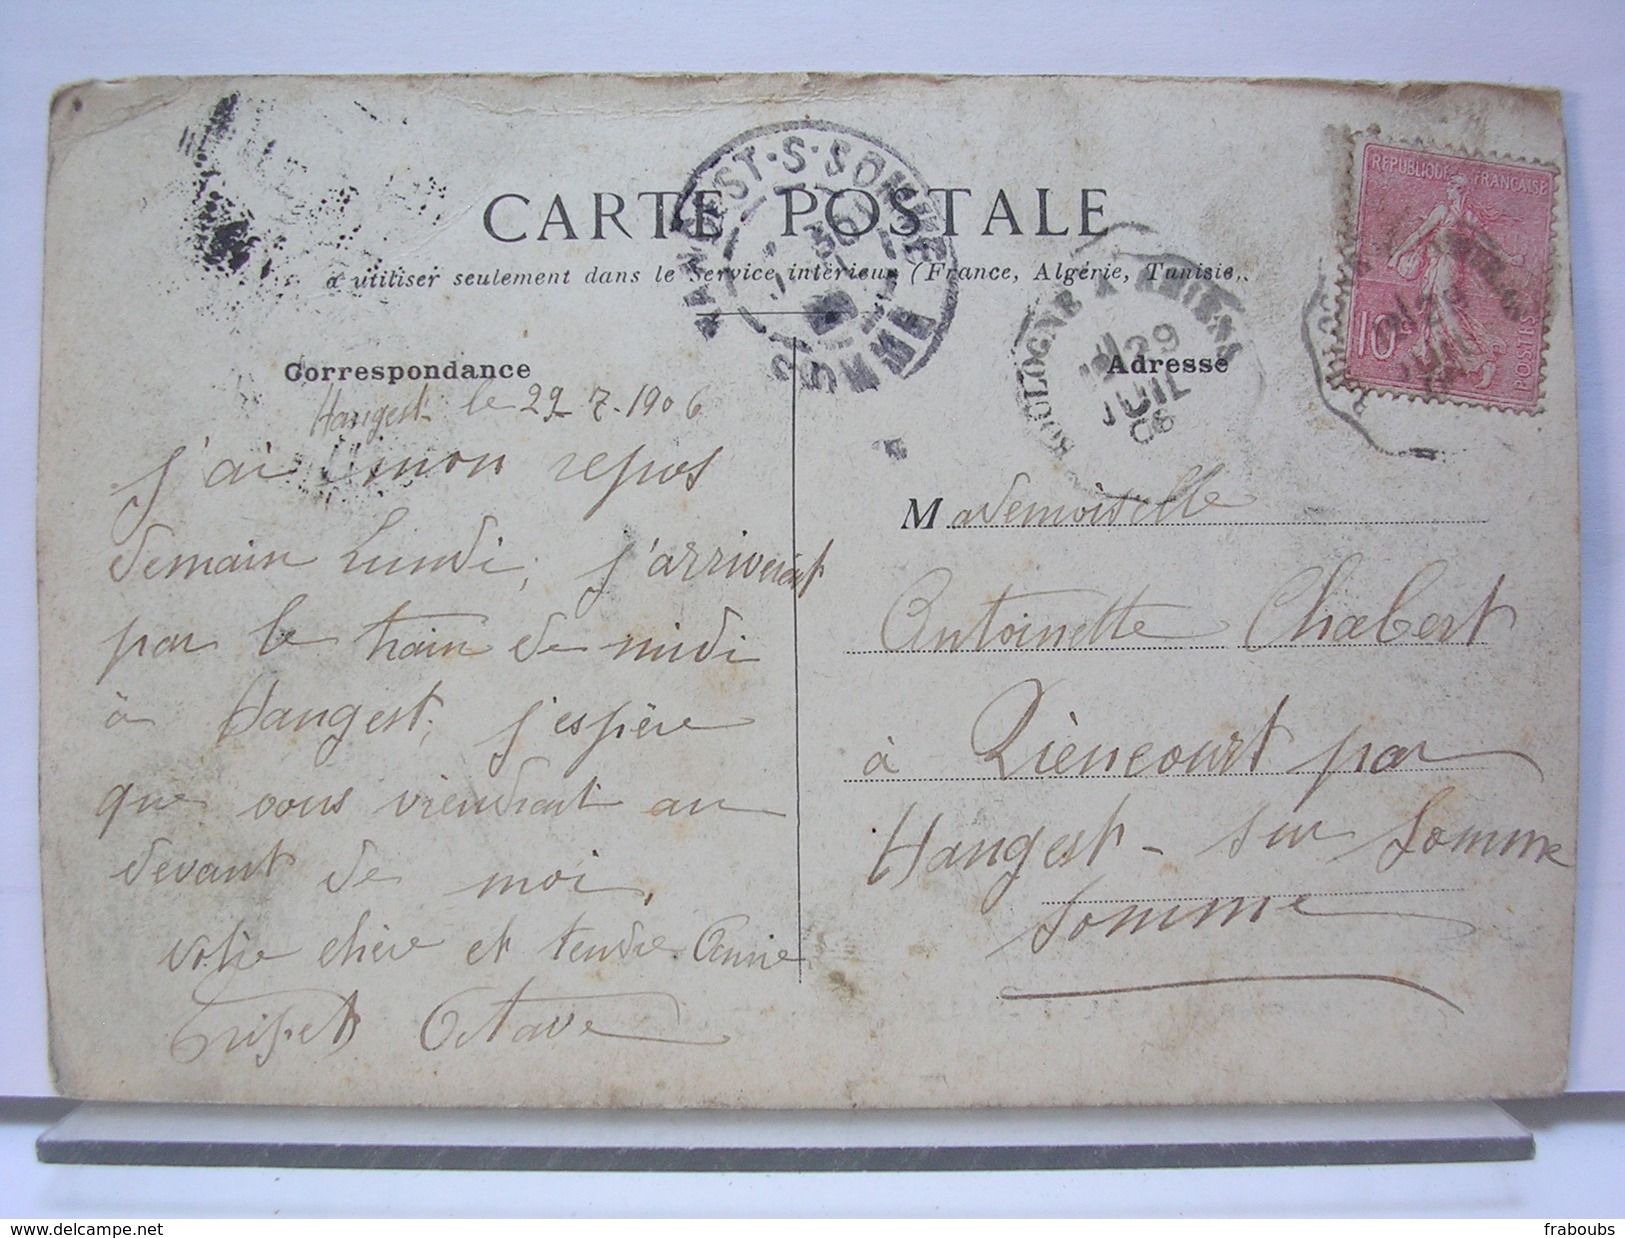 CARTE POSTALE
à utiliser seulement dans le Service intérieur (France, Algérie, Tunisie.
HANGEST-S-SOMME
SOMME
BOULOGNE A AMIENS
29
JUIL
06
REPUBLIQUE FRANÇAISE
10c
POSTES
Correspondance
Hangest le 29-7-1906
j'ai mon repos
demain Lundi, j'arriverait
par le train de midi
à Hangest, j'espère
que vous viendrait au
devant de moi,
votre chère et tendre Amie
Octave
Adresse
Mademoiselle
Antoinette Chabert
à Riencourt par
Hangest-sur Somme
Somme
fraboubs
www.delcampe.net